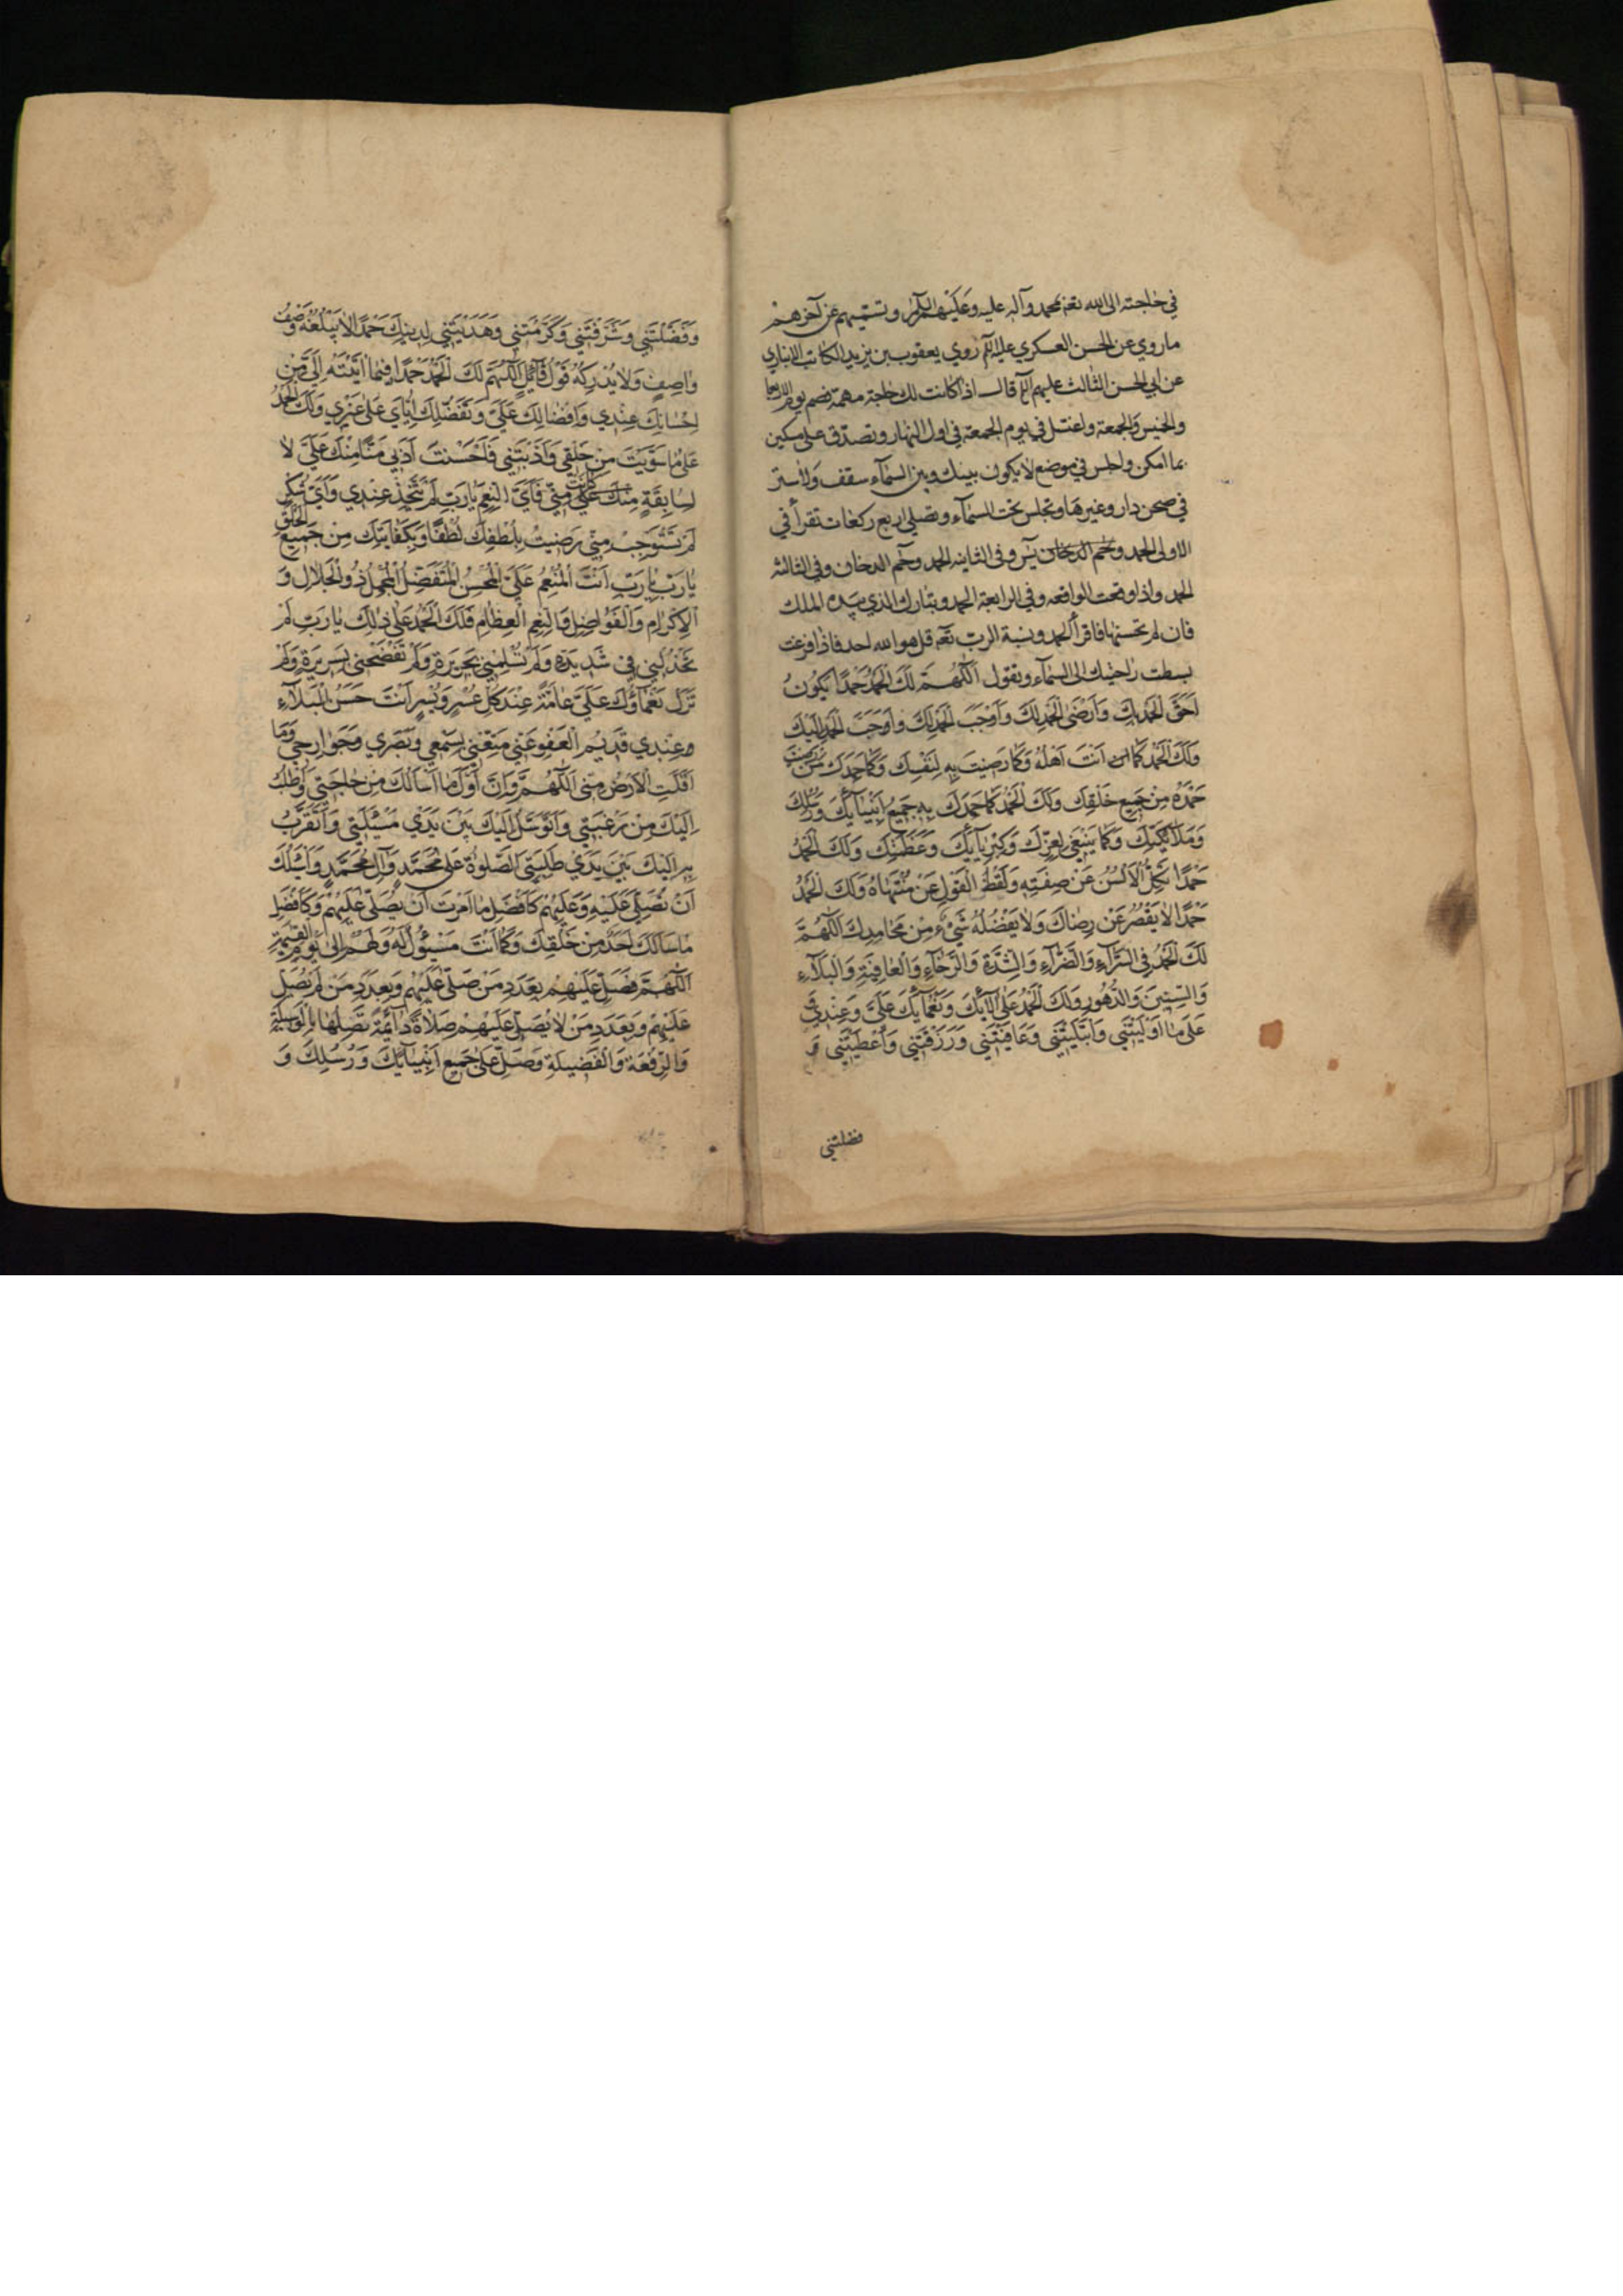 في حاجته الى الله تعه بمحمد وآله عليه وعليهم السلام وتسميهم عن آخرهم
ما روي عن الحسن العسكري عليه السلم روي يعقوب بن يزيد الكاتب الانباري
عن ابي الحسن الثالث عليهم السلم قال اذا كانت لك حاجة مهمة فصم يوم الاربعا
والخميس والجمعة واغتسل في يوم الجمعة في اول النهار وتصدق على مسكين
بما امكن واجلس في موضع لا يكون بينك وبين السماء سقف ولا ستر
في صحن دار وغيرها وتجلس تحت السماء وتصلي اربع ركعات تقرأ في
الاولى الحمد ويس وفي الثانيه الحمد وحم الدخان وفي الثالثه
الحمد واذا وقعت الواقعه وفي الرابعة الحمد وتبارك الذي بيده الملك
فان لم تحسنها فاقرأ الحمد ونسبة الرب تعه قل هو الله احد فاذا فرغت
بسطت راحتيك الى السماء وتقول اَللّهُمَّ لَكَ الْحَمْدُ حَمْدًا يَكُونُ
اَحَقَّ الْحَمْدِ بِكَ وَاَرْضَى الْحَمْدِ لَكَ وَاَوْجَبَ الْحَمْدِ لَكَ وَاَحَبَّ الْحَمْدِ اِلَيْكَ
وَلَكَ الْحَمْدُ كَمَا اَنْتَ اَهْلُهُ وَكَمَا رَضِيتَ بِهِ لِنَفْسِكَ وَكَمَا حَمِدَكَ مَنْ رَضِيتَ
حَمْدَهُ مِنْ جَمِيعِ خَلْقِكَ وَلَكَ الْحَمْدُ كَمَا حَمِدَكَ بِهِ جَمِيعُ اَنْبِيَآئِكَ وَرُسُلِكَ
وَمَلآئِكَتِكَ وَكَمَا يَنْبَغِي لِعِزِّكَ وَكِبْرِيَآئِكَ وَعَظَمَتِكَ وَلَكَ الْحَمْدُ
حَمْدًا تَكِلُّ الْاَلْسُنُ عَنْ صِفَتِهِ وَيَقِفُ الْقَوْلُ عَنْ مُنْتَهَاهُ وَلَكَ الْحَمْدُ
حَمْدًا لا يَقْصُرُ عَنْ رِضَاكَ وَلا يَفْضُلُهُ شَيْءٌ مِنْ مَحَامِدِكَ اَللّهُمَّ
لَكَ الْحَمْدُ فِي السَّرَّآءِ وَالضَّرَّآءِ وَالشِّدَّةِ وَالرَّخَآءِ وَالْعَافِيَةِ وَالْبَلآءِ
وَالسِّنِينَ وَالدُّهُورِ وَلَكَ الْحَمْدُ عَلَى آلآئِكَ وَنَعْمَآئِكَ عَلَيَّ وَعِنْدِي وَ
عَلَى مَا اَوْلَيْتَنِي وَابْتَلَيْتَنِي وَعَافَيْتَنِي وَرَزَقْتَنِي وَاَعْطَيْتَنِي وَ
فضلتني
وَفَضَّلْتَنِي وَشَرَّفْتَنِي وَكَرَّمْتَنِي وَهَدَيْتَنِي لِدِينِكَ حَمْدًا لا يَبْلُغُهُ وَصْفُ
وَاصِفٍ وَلا يُدْرِكُهُ قَوْلُ قَآئِلٍ اَللّهُمَّ لَكَ الْحَمْدُ حَمْدًا فِيمَا آتَيْتَهُ اِلَيَّ مِنْ
اِحْسَانِكَ عِنْدِي وَاِفْضَالِكَ عَلَيَّ وَتَفَضُّلِكَ اِيَّايَ عَلَى غَيْرِي وَلَكَ الْحَمْدُ
عَلَى مَا سَوَّيْتَ مِنْ خَلْقِي وَاَدَّبْتَنِي فَاَحْسَنْتَ اَدَبِي مَنًّا مِنْكَ عَلَيَّ لا
لِسَابِقَةٍ كَانَتْ مِنِّي فَاَيَّ النِّعَمِ يَا رَبِّ لَمْ تَتَّخِذْ عِنْدِي وَاَيَّ شُكْرٍ
لَمْ تَسْتَوْجِبْ مِنِّي رَضِيتُ بِلُطْفِكَ لُطْفًا وَبِكِفَايَتِكَ مِنْ جَمِيعِ الْخَلْقِ
يَا رَبِّ يَا رَبِّ اَنْتَ الْمُنْعِمُ عَلَيَّ الْمُحْسِنُ الْمُتَفَضِّلُ الْمُجْمِلُ ذُو الْجَلالِ وَ
الْاِكْرَامِ وَالْفَوَاضِلِ وَالنِّعَمِ الْعِظَامِ فَلَكَ الْحَمْدُ عَلَى ذلِكَ يَا رَبِّ لَمْ
تَخْذُلْنِي فِي شَدِيدَةٍ وَلَمْ تُسْلِمْنِي بِجَرِيرَةٍ وَلَمْ تَفْضَحْنِي بِسَرِيرَةٍ وَلَمْ
تَزَلْ نَعْمَاؤُكَ عَلَيَّ عَامَّةً عِنْدَ كُلِّ عُسْرٍ وَيُسْرٍ اَنْتَ حَسَنُ الْبَلآءِ
وعِنْدِي قَدِيمُ الْعَفْوِ عَنِّي مَتِّعْنِي بِسَمْعِي وَبَصَرِي وَجَوَارِحِي وَمَا
اَقَلَّتِ الْاَرْضُ مِنِّي اَللّهُمَّ وَاِنَّ اَوَّلَ مَا اَسْاَلُكَ مِنْ حَاجَتِي وَاَطْلُبُ
اِلَيْكَ مِنْ رَغْبَتِي وَاَتَوَسَّلُ اِلَيْكَ بَيْنَ يَدَيْ مَسْئَلَتِي وَاَتَقَرَّبُ
بِهِ اِلَيْكَ بَيْنَ يَدَيْ طَلِبَتِي الصَّلوةُ عَلَى مُحَمَّدٍ وَآلِ مُحَمَّدٍ وَاَسْئَلُكَ
اَنْ تُصَلِّيَ عَلَيْهِ وَعَلَيْهِمْ كَاَفْضَلِ مَا اَمَرْتَ اَنْ يُصَلَّى عَلَيْهِمْ وَكَاَفْضَلِ
مَا سَاَلَكَ اَحَدٌ مِنْ خَلْقِكَ وَكَمَا اَنْتَ مَسْئُولٌ لَهُ وَلَهُمْ اِلَى يَوْمِ الْقِيمَةِ
اَللّهُمَّ فَصَلِّ عَلَيْهِمْ بِعَدَدِ مَنْ صَلَّى عَلَيْهِمْ وَبِعَدَدِ مَنْ لَمْ يُصَلِّ
عَلَيْهِمْ وَبِعَدَدِ مَنْ لا يُصَلِّي عَلَيْهِمْ صَلاةً دَآئِمَةً تَصِلُهَا بِالْوَسِيلَةِ
وَالرِّفْعَةِ وَالْفَضِيلَةِ وَصَلِّ عَلَى جَمِيعِ اَنْبِيَآئِكَ وَرُسُلِكَ وَ